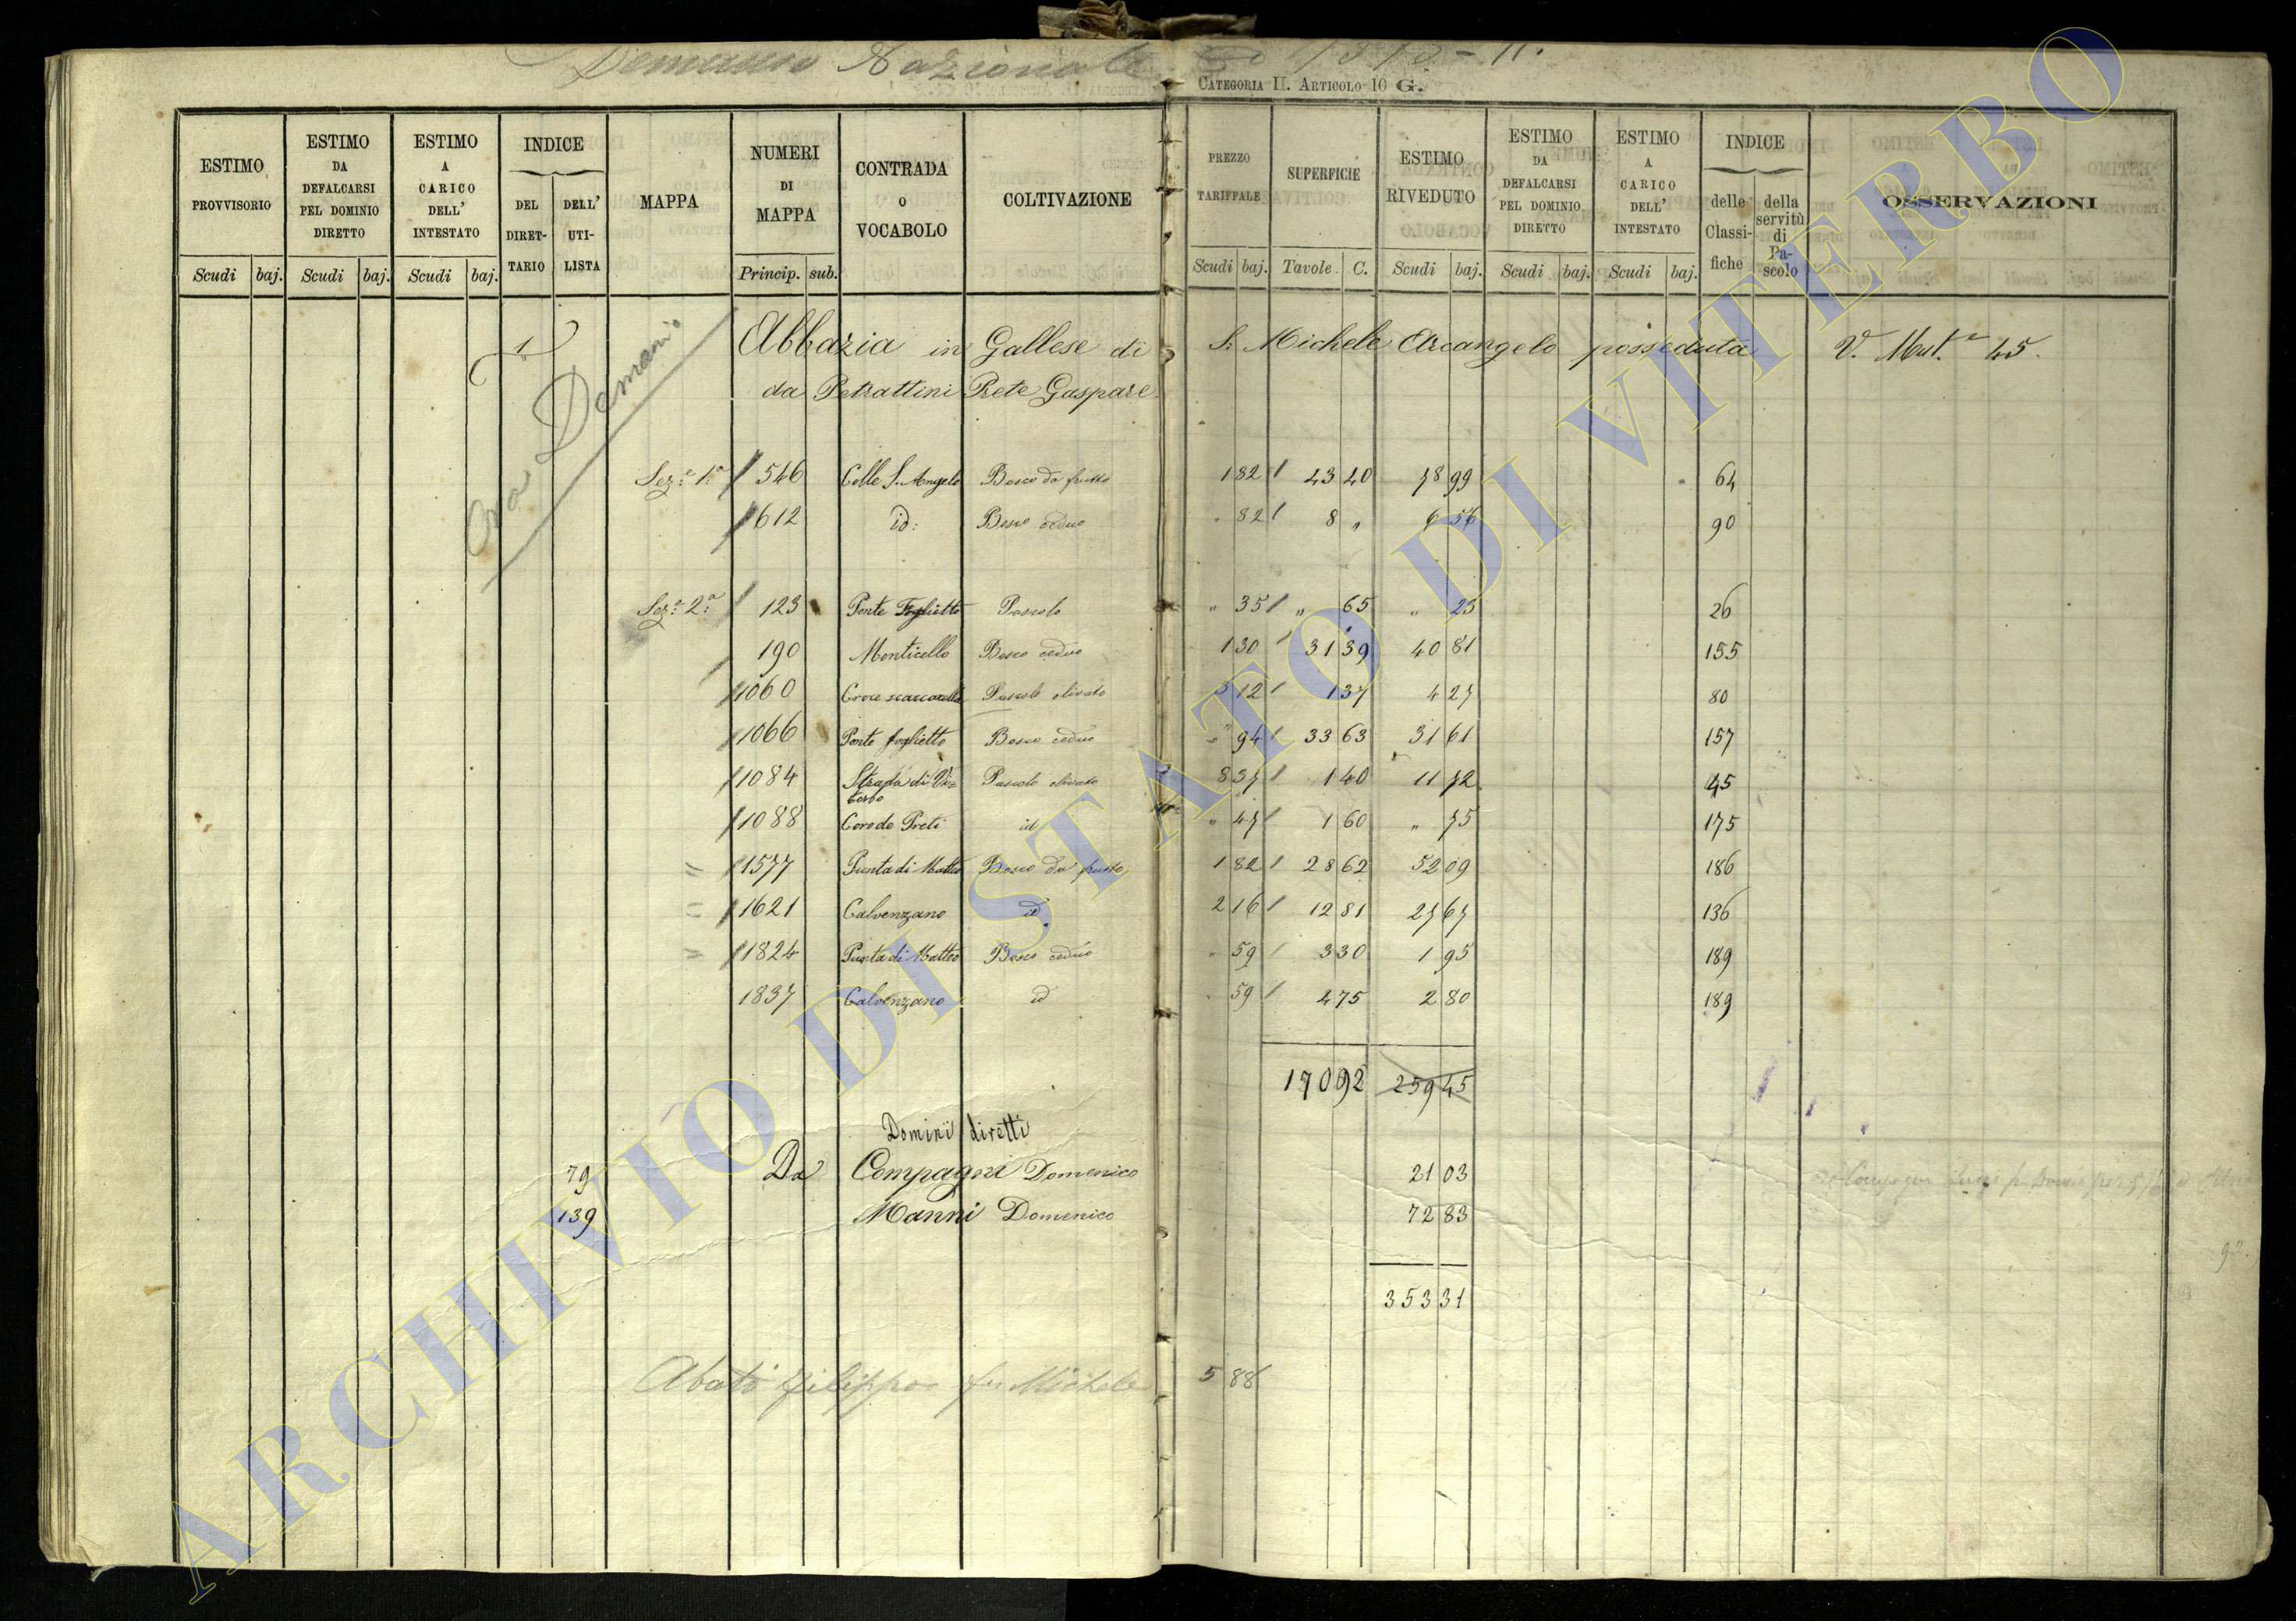 Demanio Nazionale
CATEGORIA II. ARTICOLO 10 G.
ESTIMO PROVVISORIO Scudi baj.
ESTIMO DA DEFALCARSI PEL DOMINIO DIRETTO Scudi baj.
ESTIMO A CARICO DELL' INTESTATO Scudi baj.
INDICE DEL DIRET-TARIO DELL' UTI-LISTA
MAPPA
NUMERI DI MAPPA Princip. sub.
CONTRADA O VOCABOLO
COLTIVAZIONE
PREZZO TARIFFALE Scudi baj.
SUPERFICIE Tavole C.
ESTIMO RIVEDUTO Scudi baj.
ESTIMO DA DEFALCARSI PEL DOMINIO DIRETTO Scudi baj.
ESTIMO A CARICO DELL' INTESTATO Scudi baj.
INDICE delle Classi-fiche della servitù di Pa-scolo
OSSERVAZIONI
1 Abbazia in Gallese di S. Michele Arcangelo posseduta V. Mut.e 45.
da Petrattini Prete Gaspare
Ora Demanio
Sez.e 1.a 546 Colle S. Angelo Bosco da frutto 1 82 43 40 78 99 64
612 id: Bosco ceduo " 82 8 " 6 56 90
Sez.e 2.a 123 Ponte Foglietto Pascolo " 35 " 65 " 23 26
190 Monticello Bosco ceduo 1 30 31 39 40 81 155
1060 Croce scarcarella Pascolo olivato 3 12 1 37 4 27 80
1066 Ponte foglietto Bosco ceduo " 94 33 63 31 61 157
1084 Strada di Vi=terbo Pascolo olivato 8 37 1 40 11 72 45
1088 Coro de Preti id " 47 1 60 " 75 175
" 1577 Punta di Matteo Bosco da frutto 1 82 28 62 52 09 186
" 1621 Calvenzano id 2 16 12 81 27 67 136
" 1824 Punta di Matteo Bosco ceduo " 59 3 30 1 95 189
1837 Calvenzano id " 59 4 75 2 80 189
170 92 259 45
Domini diretti
79 Da Compagni Domenico 21 03
139 Manni Domenico 72 83
353 31
Abati Filippo fu Michele 5 88
92.
ARCHIVIO DI STATO DI VITERBO